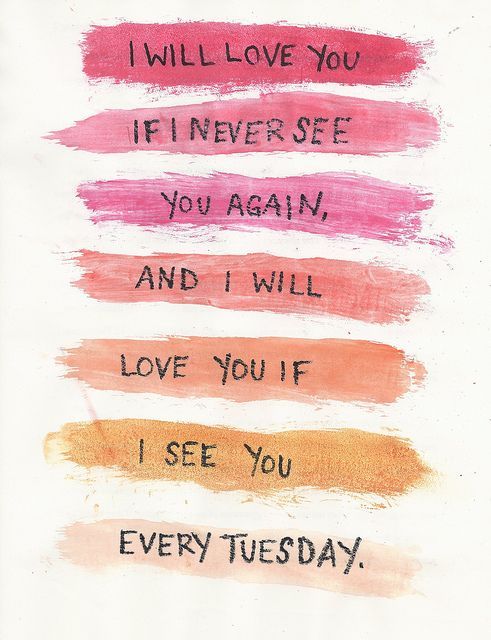 I WILL LOVE YOU
IF I NEVER SEE
YOU AGAIN,
AND I WILL
LOVE YOU IF
I SEE YOU
EVERY TUESDAY.